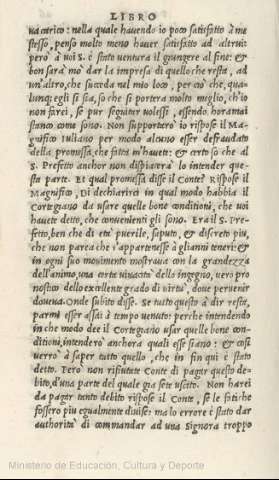 LIBRO
ua carico: nella quale hauendo io poco satisfatto à me
stesso, penso molto meno hauer satisfatto ad altrui:
però à uoi S. è stato uentura il giungere al fine: &
bon sarà mo dar la impresa di quello che resta, ad
un'altro, che succeda nel mio loco, per ciò che, qua-
lunq; egli si sia, so che si portera molto meglio, ch'io
non farei, se pur seguitar uolessi, essendo horamai
stanco come sono. Non supporterò io rispose il Ma-
gnifico Iuliano per modo alcuno esser defraudato
della promessa, che fatta m'hauete: & certo so che al
S. Prefetto anchor non dispiacerà lo intender que-
sta parte. Et qual promessa disse il Conte? Rispose il
Magnifico, Di dechiarirci in qual modo habbia il
Cortegiano da usare quelle bone conditioni, che uoi
hauete detto, che conuenienti gli sono. Era il S. Pre-
fetto, ben che di età puerile, saputo, & discreto piu,
che non parea che s'appartenesse à gli anni teneri: &
in ogni suo mouimento mostraua con la grandezza
dell'animo, una certa uiuacità dello ingegno, uero pro
nostico dello excellente grado di uirtù, doue peruenir
doueua. Onde subito disse. Se tutto questo à dir resta,
parmi esser assai à tempo uenuto: perche intendendo
in che modo dee il Cortegiano usar quelle bone con-
ditioni, intenderò anchora quali esse siano: & così
uerrò à saper tutto quello, che in fin qui è stato
detto. Però non rifiutate Conte di pagar questo de-
bito, d'una parte del quale gia sete uscito. Non harei
da pagar tanto debito rispose il Conte, se le fatiche
fossero piu egualmente diuise: ma lo errore è stato dar
authorità di commandar ad una Signora troppo
Ministerio de Educación, Cultura y Deporte